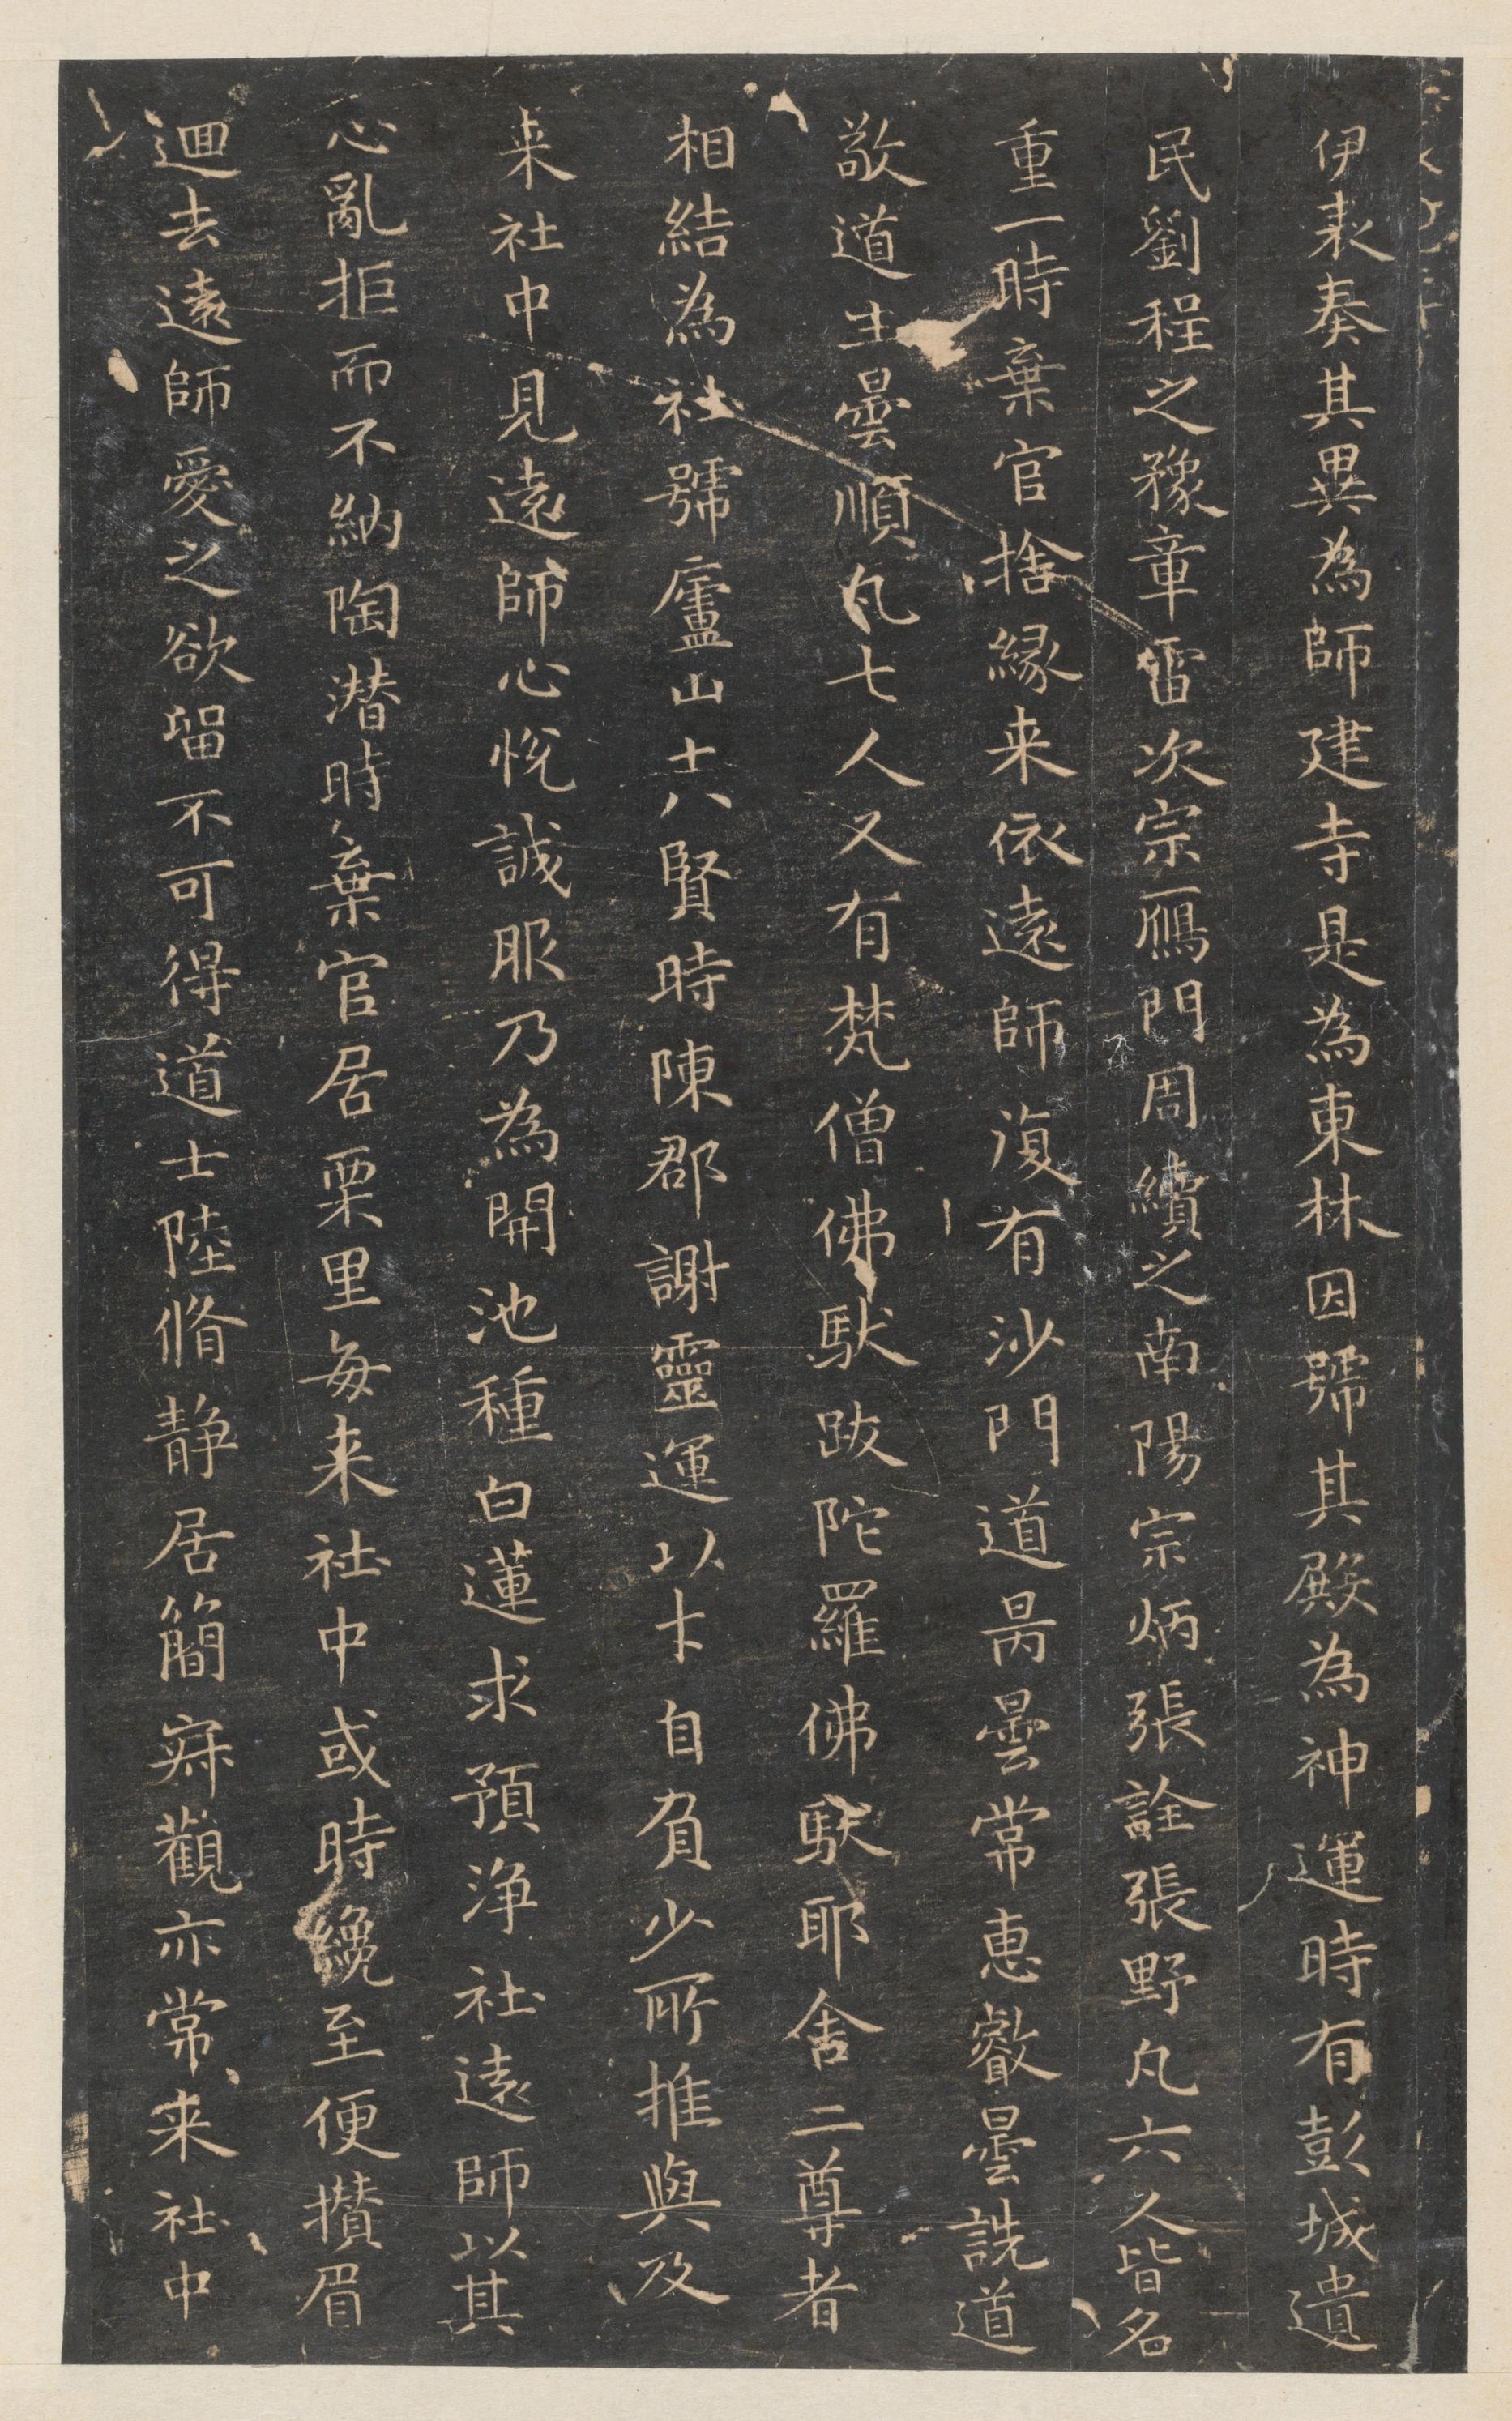 伊表奏其異為師建寺是為東林因號其殿為神運時有彭城遺
民劉程之豫章雷次宗鴈門周續之南陽宗炳張詮張野凡六人皆名
重一時棄官捨緣来依遠師復有沙門道昺曇常惠叡曇詵道
敬道生曇順凡七人又有梵僧佛馱跋陀羅佛馱耶舍二尊者
相結為社號廬山十八賢時陳郡謝靈運以才自負少所推與及
来社中見遠師心悅誠服乃為開池種白蓮求預浄社遠師以其
心亂拒而不納陶潜時棄官居栗里每来社中或時纔至便攢眉
迴去遠師愛之欲留不可得道士陸脩静居簡寂觀亦常来社中